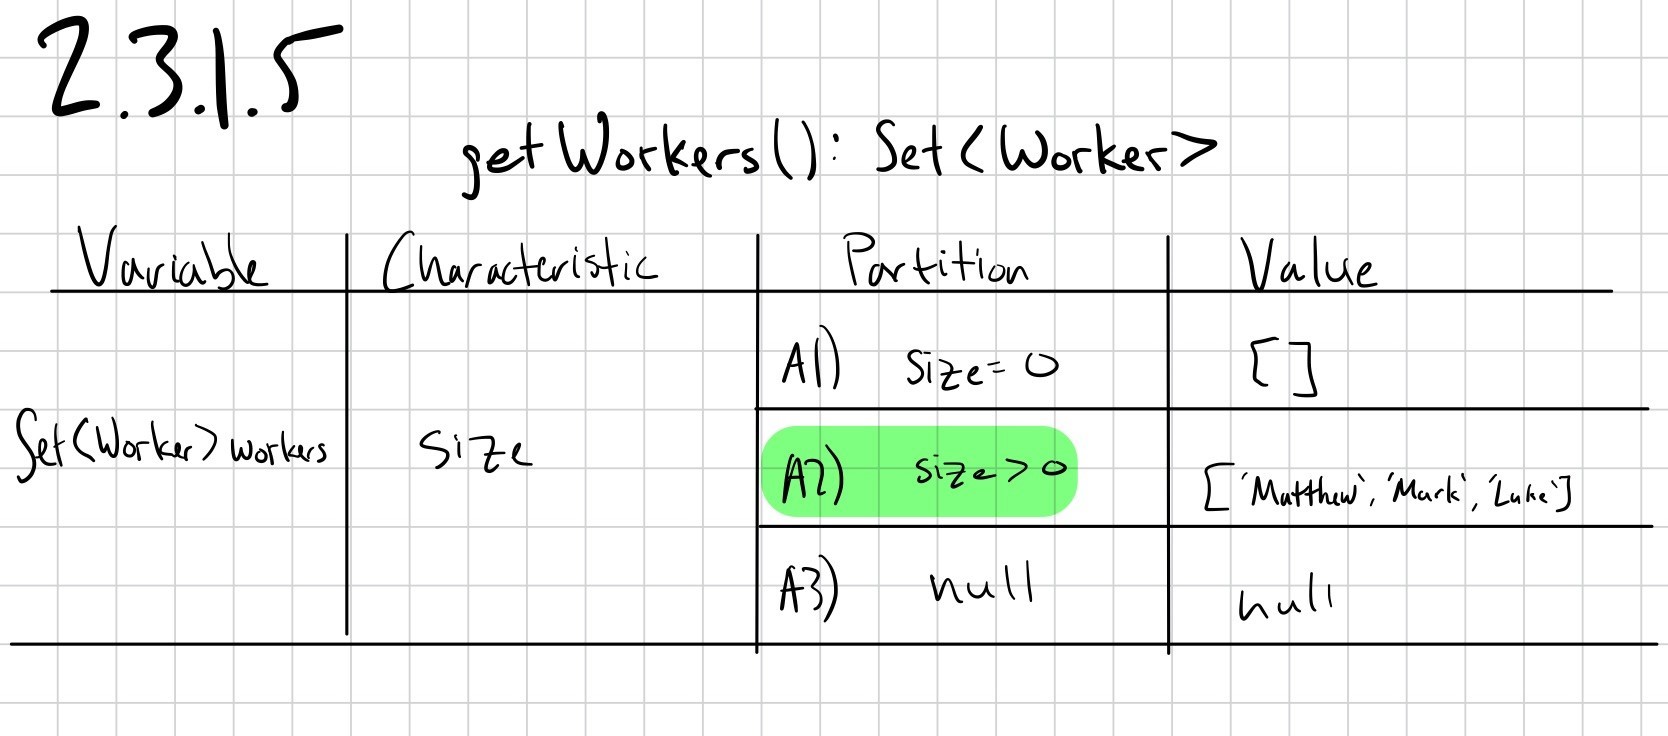 2.3.1.5
getWorkers(): Set<Worker>
Variable Characteristic Partition Value
A1) Size = 0 []
Set<Worker> workers Size A2) size > 0 ['Matthew', 'Mark', 'Luke']
A3) null null